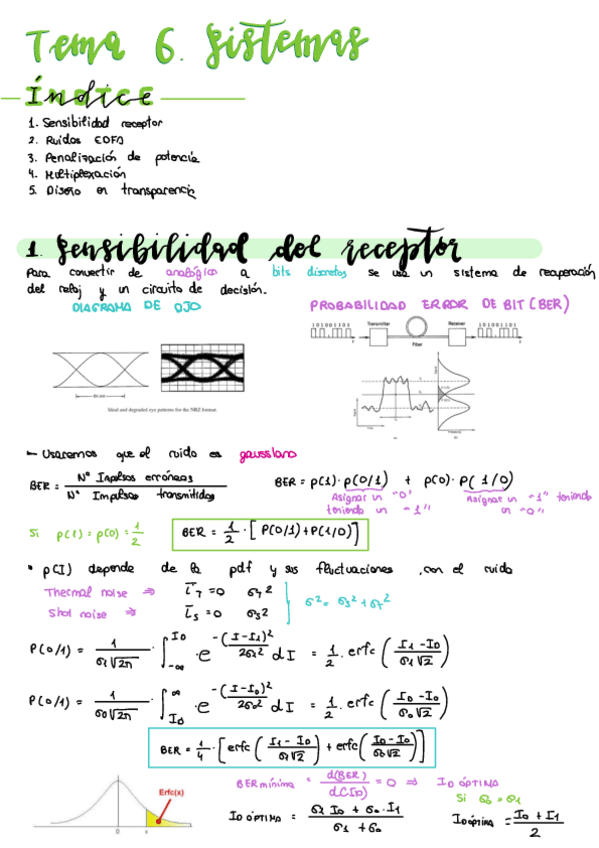 Tema 6. Sistemas
Índice
1. Sensibilidad receptor
2. Ruidos EDFA
3. Penalización de potencia
4. Multiplexación
5. Diseño en transparencia
1. Sensibilidad del receptor
Para convertir de analógico a bits discretos se usa un sistema de recuperación
del reloj y un circuito de decisión.
DIAGRAMA DE OJO
PROBABILIDAD ERROR DE BIT (BER)
1 0 1 0 0 1 1 0 1
Transmitter
Receiver
1 0 1 0 0 1 1 0 1
Fiber
Ideal and degraded eye patterns for the NRZ format.
- Usaremos que el ruido es gaussiano
BER = Nº Impulsos erróneos / Nº Impulsos transmitidos
BER = p(1) · p(0/1) + p(0) · P(1/0)
Asignar un "0" teniendo un "1"
Asignar un "1" teniendo un "0"
Si p(1) = p(0) = 1/2
BER = 1/2 · [P(0/1) + P(1/0)]
• p(I) depende de la pdf y sus fluctuaciones, con el ruido
Thermal noise ⇒ i_T = 0 σ_T²
Shot noise ⇒ i_s = 0 σ_s²
σ² = σ_s² + σ_T²
P(0/1) = 1/(σ₁√2π) · ∫_{-∞}^{I_D} · e^{-(I-I₁)²/2σ₁²} dI = 1/2 · erfc((I₁-I_D)/(σ₁√2))
P(0/1) = 1/(σ₀√2π) · ∫_{I_D}^{∞} · e^{-(I-I₀)²/2σ₀²} dI = 1/2 · erfc((I_D-I₀)/(σ₀√2))
BER = 1/4 · [erfc((I₁-I_D)/(σ₁√2)) + erfc((I_D-I₀)/(σ₀√2))]
Erfc(x)
0 x
BER mínima = d(BER)/d(I_D) = 0 ⇒ I_D ÓPTIMA
Si σ₀ = σ₁
I_D ÓPTIMA = (σ₁ I₀ + σ₀ · I₁)/(σ₁ + σ₀)
I_D óptima = (I₀ + I₁)/2